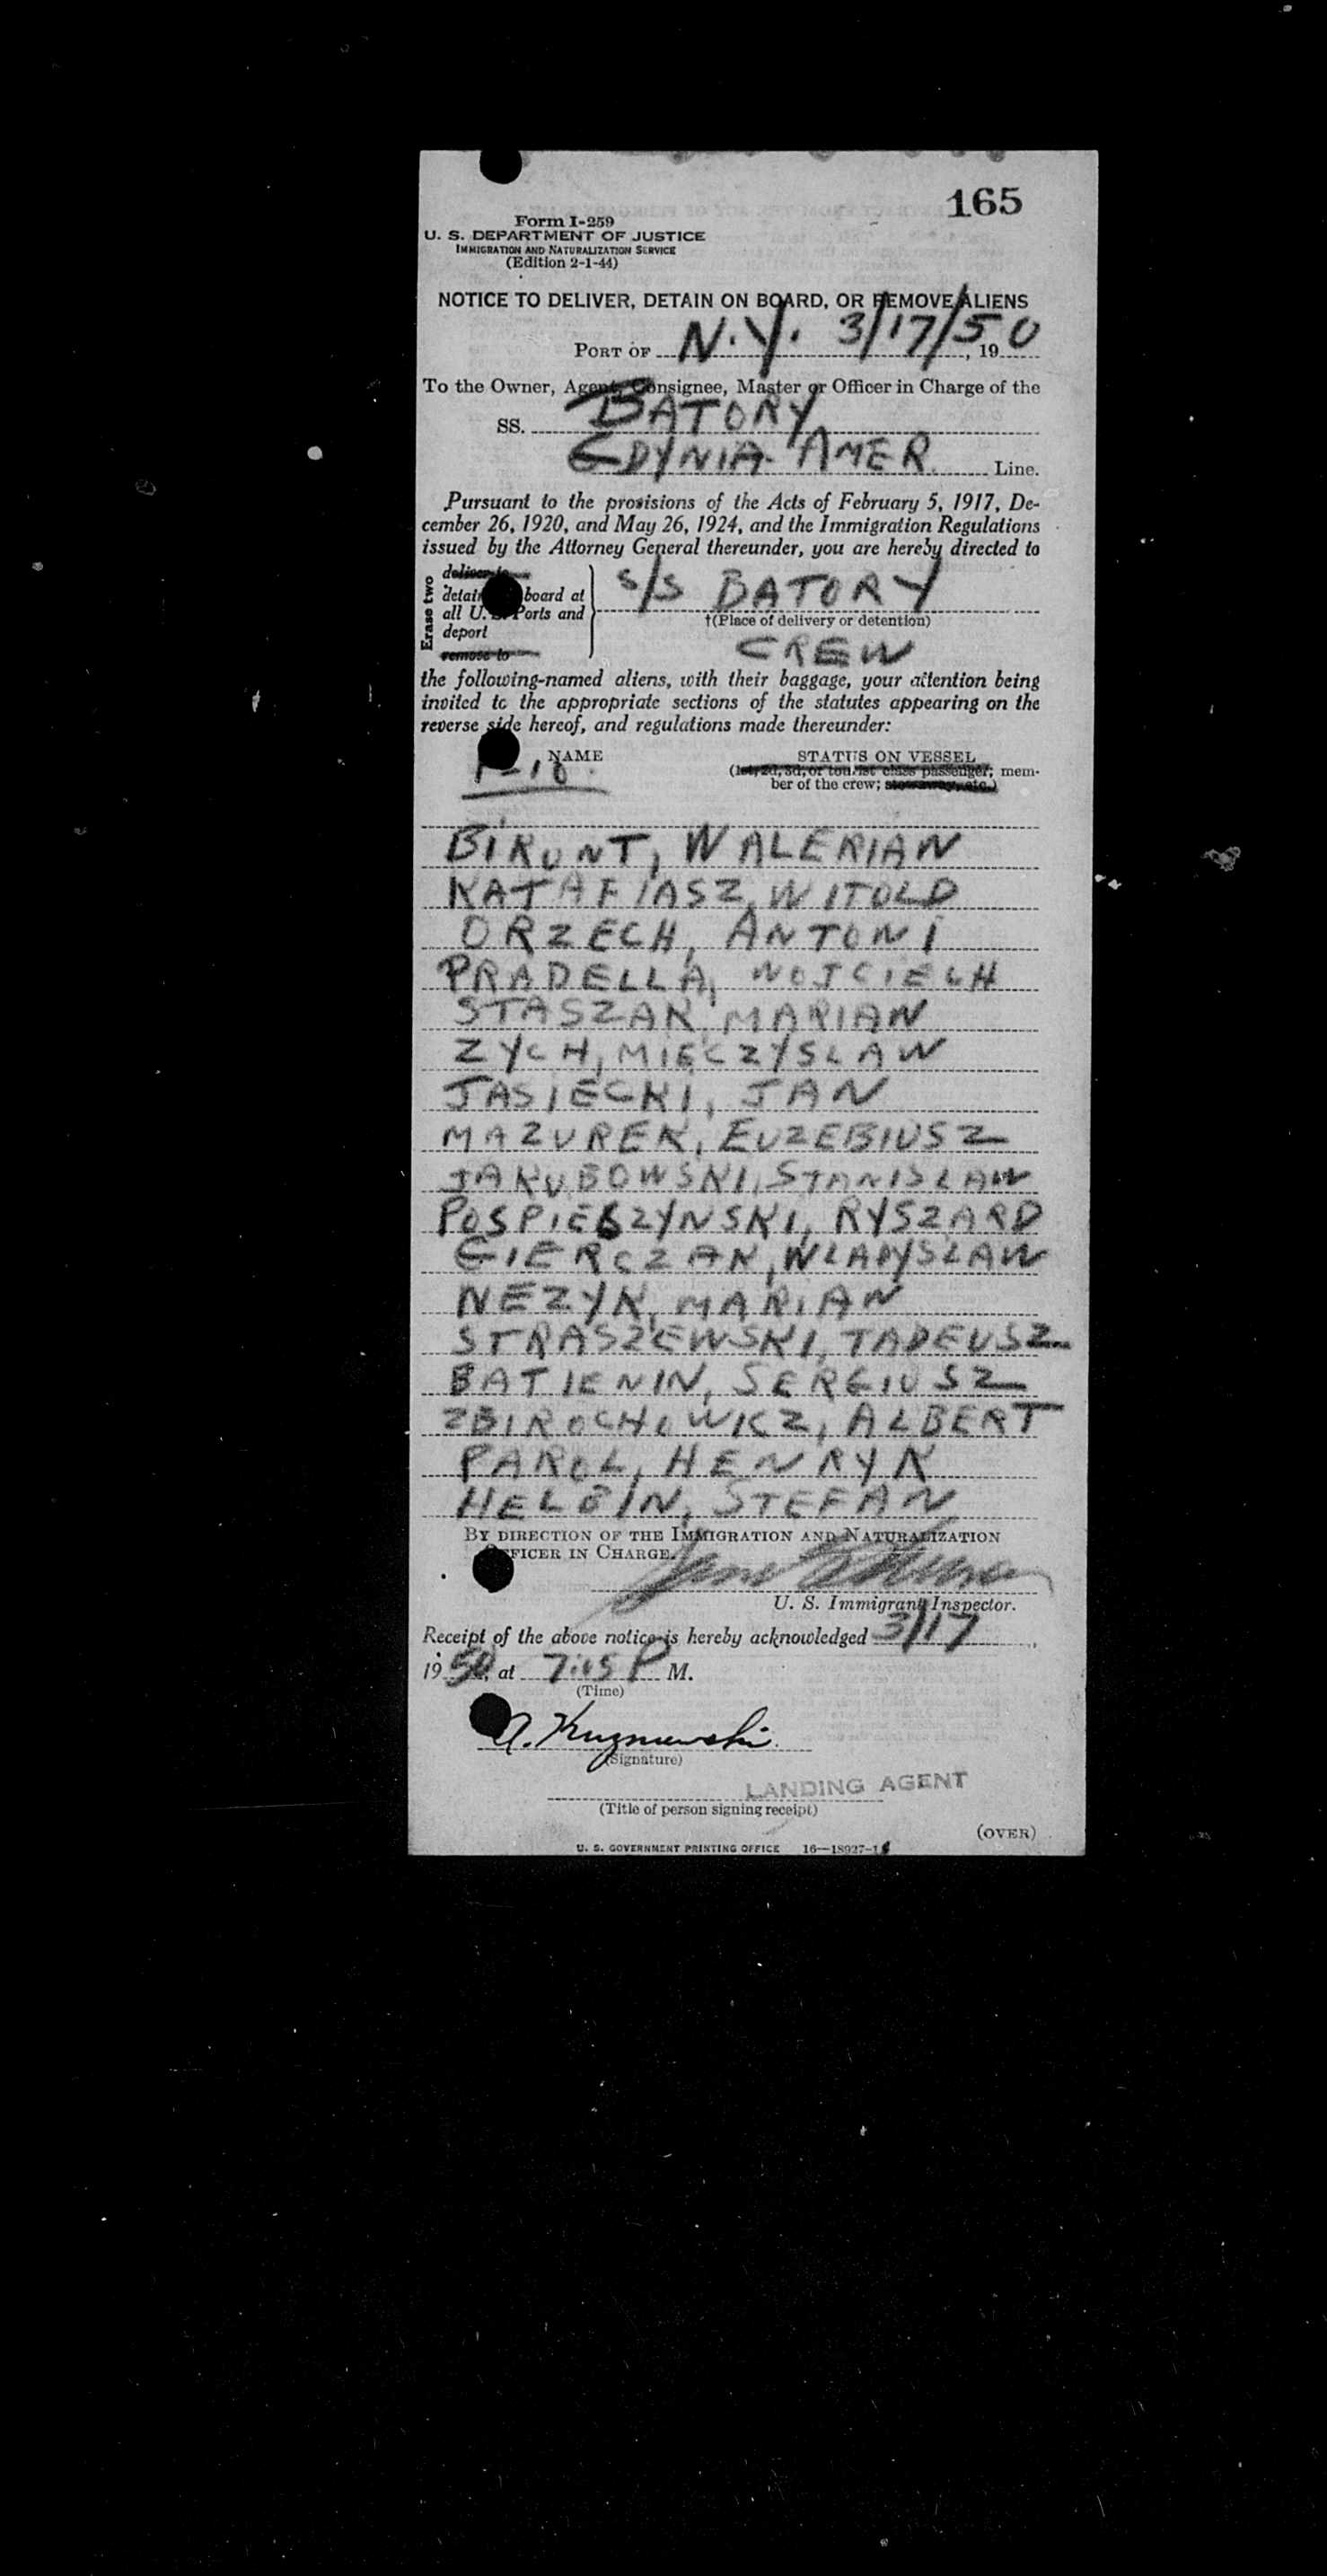 165
Form I-259
U. S. DEPARTMENT OF JUSTICE
IMMIGRATION AND NATURALIZATION SERVICE
(Edition 2-1-44)
NOTICE TO DELIVER, DETAIN ON BOARD, OR REMOVE ALIENS
PORT OF N.Y. 3/17/50, 19
To the Owner, Agent, Consignee, Master or Officer in Charge of the
SS. BATORY
GDYNIA-AMER. Line.
Pursuant to the provisions of the Acts of February 5, 1917, De-
cember 26, 1920, and May 26, 1924, and the Immigration Regulations
issued by the Attorney General thereunder, you are hereby directed to
Erase two
deliver to
detain board at
all U. S. Ports and
deport
remove to
S/S BATORY
†(Place of delivery or detention)
CREW
the following-named aliens, with their baggage, your attention being
invited to the appropriate sections of the statutes appearing on the
reverse side hereof, and regulations made thereunder:
NAME STATUS ON VESSEL
(1st, 2d, 3d, or tourist class passenger; mem-
ber of the crew; stowaway, etc.)
BIRUNT, WALERIAN
KATAFIASZ, WITOLD
ORZECH, ANTONI
PRADELLA, WOJCIECH
STASZAK, MARIAN
ZYCH, MIECZYSLAW
JASIECKI, JAN
MAZUREK, EUZEBIUSZ
JAKUBOWSKI, STANISLAW
POSPIESZYNSKI, RYSZARD
GIERCZAK, WLADYSLAW
NEZYK, MARIAN
STRASZEWSKI, TADEUSZ
BATIENIN, SERGIUSZ
ZBIROCHOWICZ, ALBERT
PAROL, HENRYK
HELBIN, STEFAN
BY DIRECTION OF THE IMMIGRATION AND NATURALIZATION
OFFICER IN CHARGE.
U. S. Immigrant Inspector.
Receipt of the above notice is hereby acknowledged 3/17,
1950, at 7:05 P M.
(Time)
(Signature)
LANDING AGENT
(Title of person signing receipt)
(OVER)
U. S. GOVERNMENT PRINTING OFFICE 16—18927-1